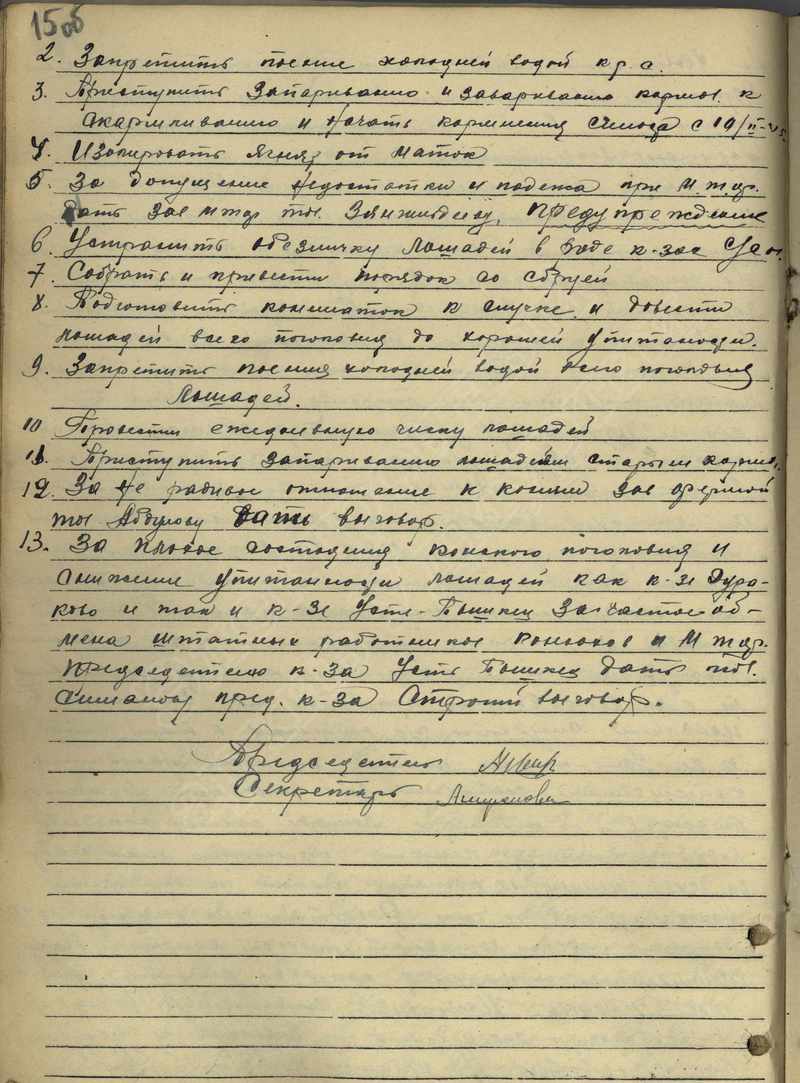 15 об
2. Запретить поение холодней водой к р. с.
3. Приступить запариванию и завариванию кормов. к
скармливанию и начать кормления с 10/II-45
4. Изолировать ягняз от маток
5. За допущение недостатки и подежа при М.т.ф.
дать зав мтф тов. предупреждение
6. Устранить обезличку лошадей в к-зах
7. Собрать и привести порядок со сбруей
8. Подготовить конематок к случке и довести
лошадей всего поголовия до хорошей упитаности.
9. Запретить поения холодней водой всего поголовия
Лошадей.
10 Провести ежедневную чиску лошадей
11. Приступить запариванию лошадей старым кормов.
12. За не радивое отношение к коням зав фермой
тов Абдулову Дать выговор.
13. За плохое состояния конского поголовия и
снижение упитанности лошадей как к-зе Дура-
ково и так и к-зе Усть-Бишкец За частое об-
мена штатных работников конюхов и М.т.ф.
Председателю к-за Усть Бишкец дать тов.
пред. к-за Строгий выговор.
Председатель
Секретарь